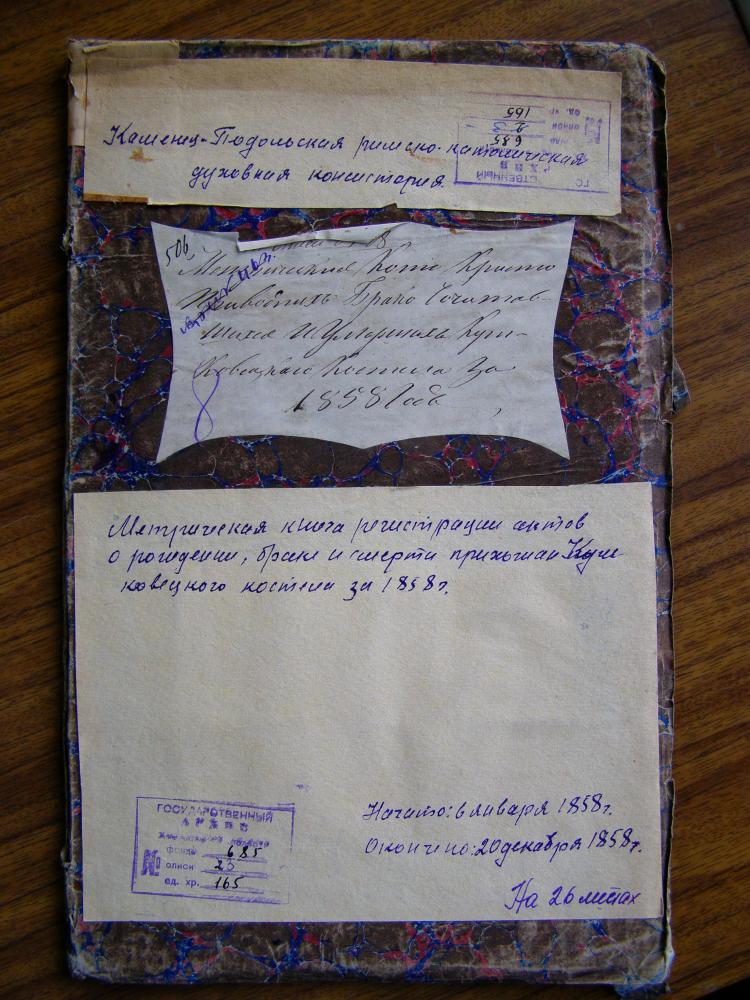 Каменец-Подольская римско-католическая
духовная консистория.
ГОСУДАРСТВЕННЫЙ
АРХИВ
685
23
165
ед. хр.
506
Крести
Брако Сочетав-
шихся И Умерших Куш-
ковецкаго Костела За
1858 Годъ
8
Метрическая книга регистрации актов
о рождении, браке и смерти прихожан Куш-
ковецкого костела за 1858 г.
ГОСУДАРСТВЕННЫЙ
АРХИВ
области
№ фонд 685
описи 23
ед. хр. 165
Начато: 6 января 1858 г.
Окончено: 20 декабря 1858 г.
На 26 листах